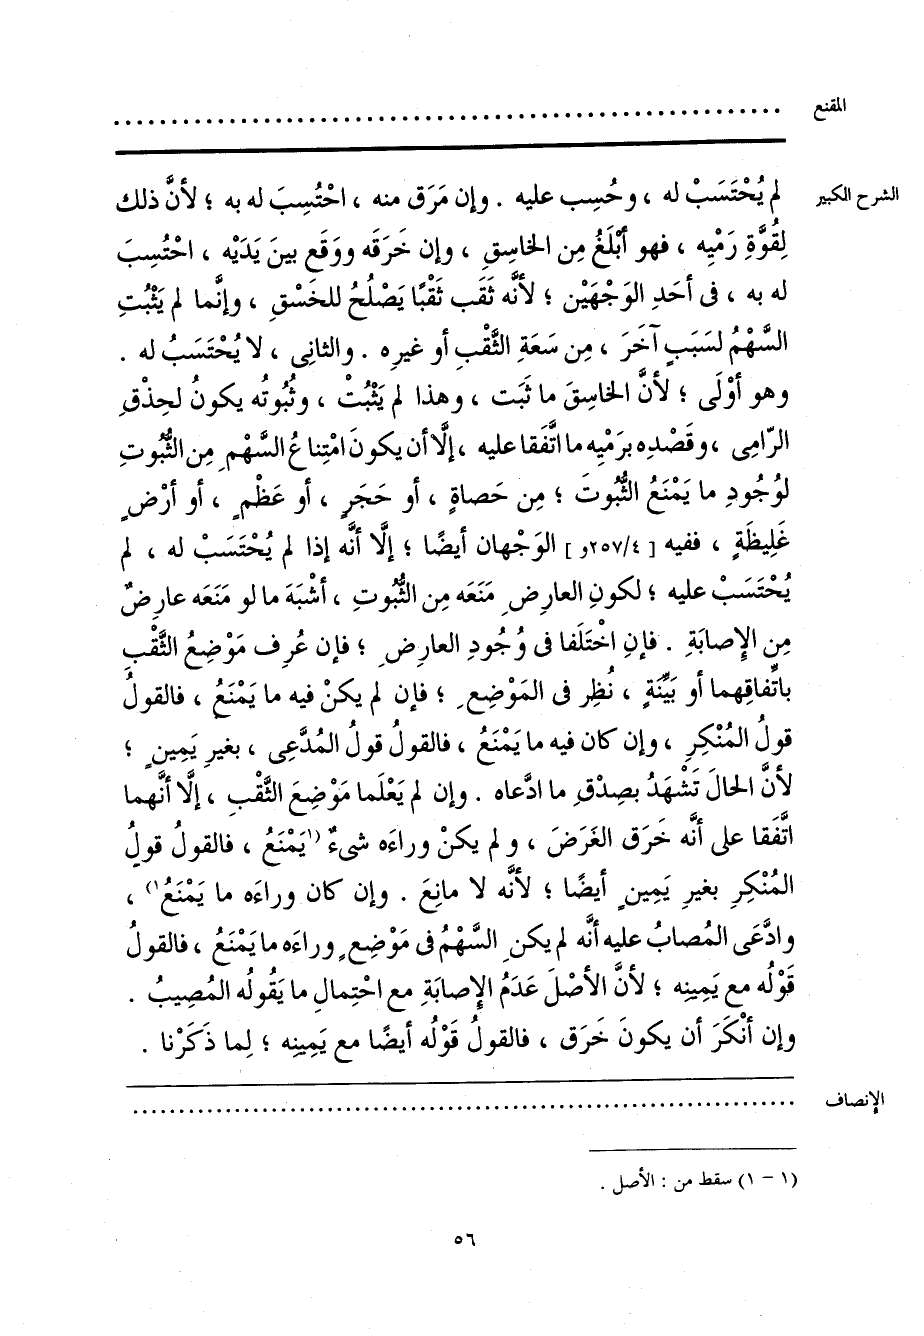 المقنع
الشرح الكبير
لم يُحْتَسَبْ له ، وحُسِب عليه . وإن مَرَق منه ، احْتُسِبَ له به ؛ لأنَّ ذلك
لِقُوَّةِ رَمْيِه ، فهو أبْلَغُ مِن الخاسِقِ ، وإن خَرَقَه ووَقَع بينَ يَدَيْه ، احْتُسِبَ
له به ، فى أحَدِ الوَجْهَيْن ؛ لأنَّه ثَقَب ثَقْبًا يَصْلُحُ للخَسْقِ ، وإنَّما لم يَثْبُتِ
السَّهْمُ لسَبَبٍ آخَرَ ، مِن سَعَةِ الثَّقْبِ أو غيرِه . والثانِى ، لا يُحْتَسَبُ له .
وهو أوْلَى ؛ لأنَّ الخاسِقَ ما ثَبَت ، وهذا لم يَثْبُتْ ، وثُبُوتُه يكونُ لحِذْقِ
الرّامِى ، وقَصْدِه برَمْيِه ما اتَّفَقا عليه ، إلَّا أن يكونَ امْتِناعُ السَّهْمِ مِن الثُّبُوتِ
لوُجُودِ ما يَمْنَعُ الثُّبُوتَ ؛ مِن حَصاةٍ ، أو حَجَرٍ ، أو عَظْمٍ ، أو أرْضٍ
غَلِيظَةٍ ، ففيه [ ٢٥٧/٤و ] الوَجْهان أيضًا ؛ إلَّا أنَّه إذا لم يُحْتَسَبْ له ، لم
يُحْتَسَبْ عليه ؛ لكونِ العارِضِ مَنَعَه مِن الثُّبُوتِ ، أشْبَهَ ما لو مَنَعَه عارِضٌ
مِن الإِصابَةِ . فإنِ اخْتَلَفا فى وُجُودِ العارِضِ ؛ فإن عُرِف مَوْضِعُ الثَّقْبِ
باتِّفاقِهما أو بَيِّنَةٍ ، نُظِر فى المَوْضِعِ ؛ فإن لم يكنْ فيه ما يَمْنَعُ ، فالقولُ
قولُ المُنْكِرِ ، وإن كان فيه ما يَمْنَعُ ، فالقولُ قولُ المُدَّعِى ، بغيرِ يَمِينٍ ؛
لأنَّ الحالَ تَشْهَدُ بصِدْقِ ما ادَّعاه . وإن لم يَعْلَما مَوْضِعَ الثَّقْبِ ، إلَّا أنَّهما
اتَّفَقا على أنَّه خَرَق الغَرَضَ ، ولم يكنْ وراءَه شىءٌ (١يَمْنَعُ ، فالقولُ قولُ
المُنْكِرِ بغيرِ يَمِينٍ أيضًا ؛ لأنَّه لا مانِعَ . وإن كان وراءَه ما يَمْنَعُ١) ،
وادَّعَى المُصابُ عليه أنَّه لم يكنِ السَّهْمُ فى مَوْضِعٍ وراءَه ما يَمْنَعُ ، فالقولُ
قَوْلُه مع يَمِينِه ؛ لأنَّ الأصْلَ عَدَمُ الإِصابَةِ مع احْتِمالِ ما يَقُولُه المُصِيبُ .
وإن أنْكَرَ أن يكونَ خَرَق ، فالقولُ قَوْلُه أيضًا مع يَمِينِه ؛ لِما ذَكَرْنا .
الإنصاف
(١ - ١) سقط من : الأصل .
٥٦